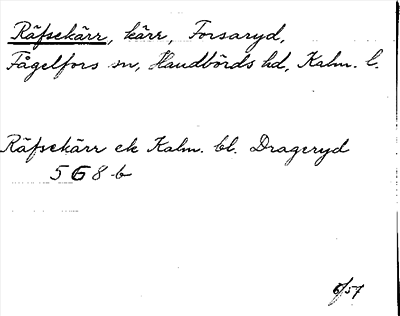 Räfsekärr, kärr, Forsaryd,
Fågelfors sn, Handbörds hd, Kalm. l.
Räfsekärr ek Kalm. bl. Drageryd
568 b
6/57